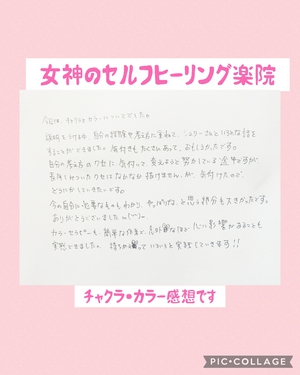 女神のセルフヒーリング楽院
今回は、チャクラカラーについてでした。
説明をうけながら、自分の経験や考え方に重ねて、シェリーさんといろんな話を
することができました。気付きもたくさんあって、おもしろかったです。
自分の考え方のクセに気付いて、変えようと努力している途中ですが
長年しみついたクセはなかなか抜けませんが、気付けたので、
どうにかしていきたいです。
今の自分に必要なものもわかり、やっぱりな、と思う部分も大きかったです。
ありがとうございました
カラーセラピーも、簡単な作業で、意外なほど心に影響があることも
実感できました。
いろいろと実践していきます!!
チャクラ・カラー感想です
PIC・COLLAGE